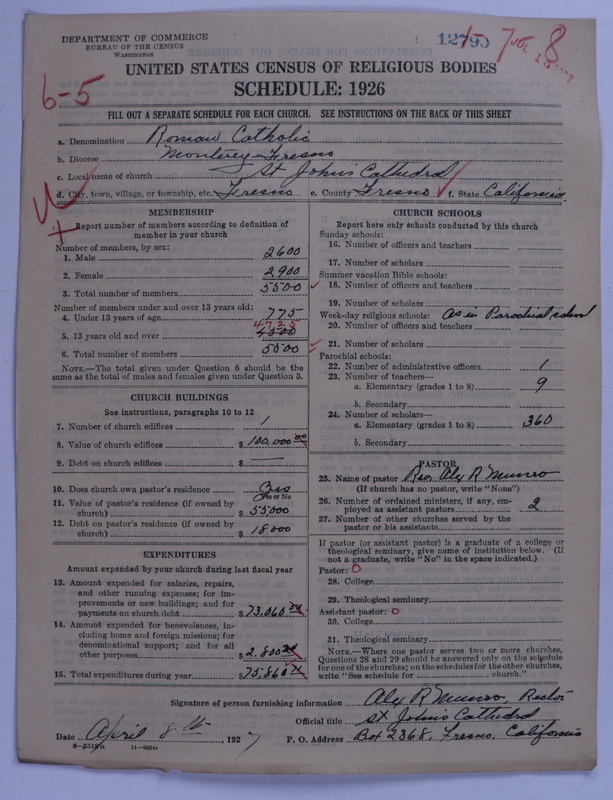 DEPARTMENT OF COMMERCE
BUREAU OF THE CENSUS
WASHINGTON
UNITED STATES CENSUS OF RELIGIOUS BODIES
SCHEDULE: 1926
6-5
FILL OUT A SEPARATE SCHEDULE FOR EACH CHURCH. SEE INSTRUCTIONS ON THE BACK OF THIS SHEET
a. Denomination Roman Catholic
b. Diocese Monterey-Fresno
c. Local name of church St John's Cathedral
d. City, town, village, or township, etc. Fresno e. County Fresno f. State California
MEMBERSHIP
Report number of members according to definition of
member in your church
Number of members, by sex:
1. Male 2600
2. Female 2900
3. Total number of members 5500
Number of members under and over 13 years old:
4. Under 13 years of age 775
4725
5. 13 years old and over 4500
6. Total number of members 5500
NOTE.—The total given under Question 6 should be
same as the total of males and females given under Question 3.
CHURCH BUILDINGS
See instructions, paragraphs 10 to 12
7. Number of church edifices 1
8. Value of church edifices $ 100,000 00
9. Debt on church edifices $ —
10. Does church own pastor's residence Yes
Yes or No
11. Value of pastor's residence (if owned by
church) $ 55000
12. Debt on pastor's residence (if owned by
church) $ 18000
EXPENDITURES
Amount expended by your church during last fiscal year
13. Amount expended for salaries, repairs,
and other running expenses; for im-
provements or new buildings; and for
payments on church debt $ 73,060
14. Amount expended for benevolences, in-
cluding home and foreign missions; for
denominational support; and for all
other purposes $ 2,800
15. Total expenditures during year $ 75,860
CHURCH SCHOOLS
Report here only schools conducted by this church
Sunday schools:
16. Number of officers and teachers
17. Number of scholars
Summer vacation Bible schools:
18. Number of officers and teachers
19. Number of scholars
Week-day religious schools: as in Parochial school
20. Number of officers and teachers
21. Number of scholars
Parochial schools:
22. Number of administrative officers 1
23. Number of teachers—
a. Elementary (grades 1 to 8) 9
b. Secondary
24. Number of scholars—
a. Elementary (grades 1 to 8) 360
b. Secondary
PASTOR
25. Name of pastor Rev. Alex R Munro
(If church has no pastor, write "None")
26. Number of ordained ministers, if any, em-
ployed as assistant pastors 2
27. Number of other churches served by the
pastor or his assistants
If pastor (or assistant pastor) is a graduate of a college or
theological seminary, give name of institution below. (If
not a graduate, write "No" in the space indicated.)
Pastor: O
28. College
29. Theological seminary
Assistant pastor: O
30. College
31. Theological seminary
NOTE.—Where one pastor serves two or more churches,
Questions 28 and 29 should be answered only on the schedule
for one of the churches; on the schedules for the other churches,
write "See schedule for church."
Signature of person furnishing information Alex R Munro, Rector
Official title St John's Cathedral
Date April 8th, 1927 P. O. Address Box 2368, Fresno, California